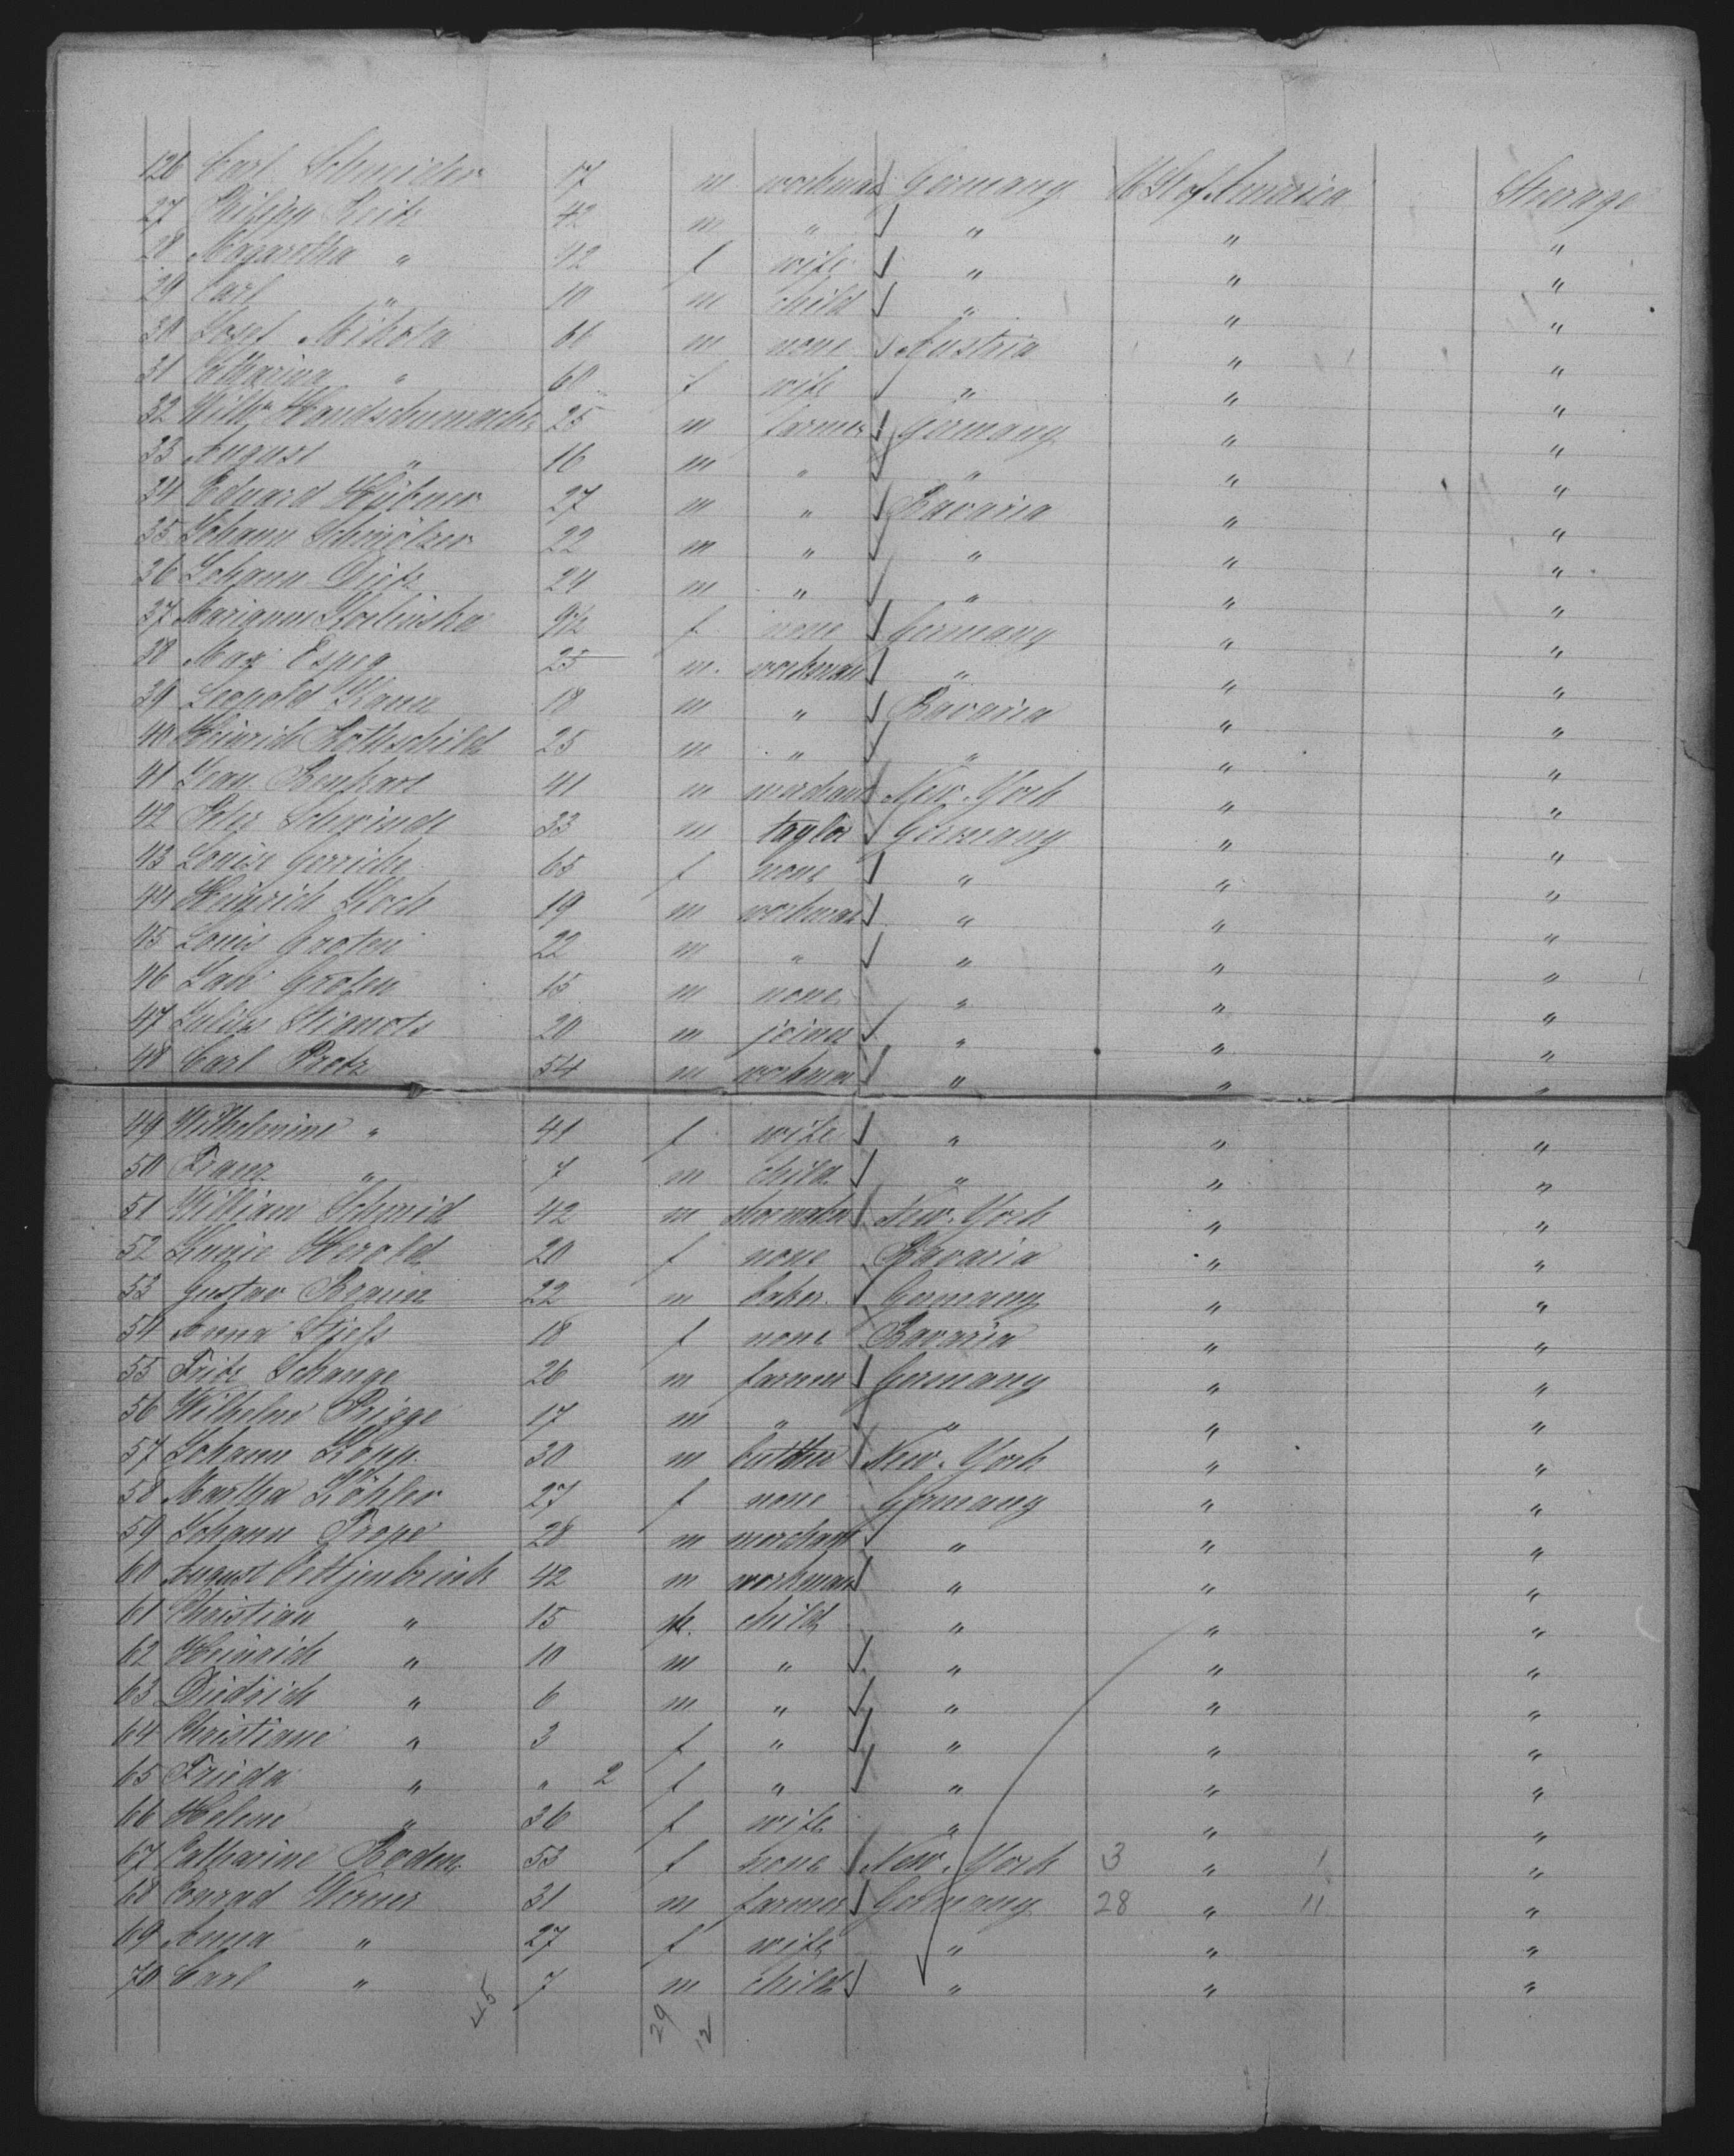 126 Carl Schneider 17 m workman Germany U St of America Steerage
27 Philipp Reitz 42 m " " " "
28 Magaretha " 42 f wife " " "
29 Carl " 10 m child " " "
30 Josef Mikota 61 m none Austria " "
31 Catharina " 60 f wife " " "
32 Wilh. Handschumacher 25 m farmer Germany " "
33 August " 16 m " " " "
34 Eduard Hübner 27 m " Bavaria " "
35 Johann Schmölzer 22 m " " " "
36 Johann Dietz 24 m " " " "
37 Marianna 9/12 f none Germany " "
38 Max Espig 25 m. workman " " "
39 Leopold Kann 18 m " Bavaria " "
40 Heinrich Rothschild 25 m " " " "
41 Jean 41 m merchant New-York " "
42 Peter Schwindt 33 m taylor Germany " "
43 Louise Gerricke 65 f none " " "
44 Heinrich Koch 19 m workman " " "
45 Louis Groten 22 m " " " "
46 Groten 15 m none " " "
47 Julius 20 m joiner " " "
48 Carl Protz 54 m workman " " "
49 Wilhelmine " 41 f wife " " "
50 Franz " 7 m child " " "
51 William Schmid 42 m shoemaker New-York " "
52 Herold 20 f none Bavaria " "
53 Gustav Braun 22 m baker Germany " "
54 Anna 18 f none Bavaria " "
55 Fritz Schange 26 m farmer Germany " "
56 Wilhelm Prigge 17 m " " " "
57 Johann Kopp 30 m butcher New-York " "
58 Martha Köhler 27 f none Germany " "
59 Johann Prope 28 m merchant " " "
60 August Oettjenbrink 42 m workman " " "
61 Christian " 15 m. child " " "
62 Heinrich " 10 m " " " "
63 Diedrich " 6 m " " " "
64 Christiane " 3 f " " " "
65 Frieda " " 2 f " " " "
66 Helene " 36 f wife " " "
67 Catharine Boden 53 f none New-York 3 " 1 "
68 Conrad Werner 31 m farmer Germany 28 " 11 "
69 Anna " 27 f wife " " "
70 Carl " 7 m child " " "
45 29 12